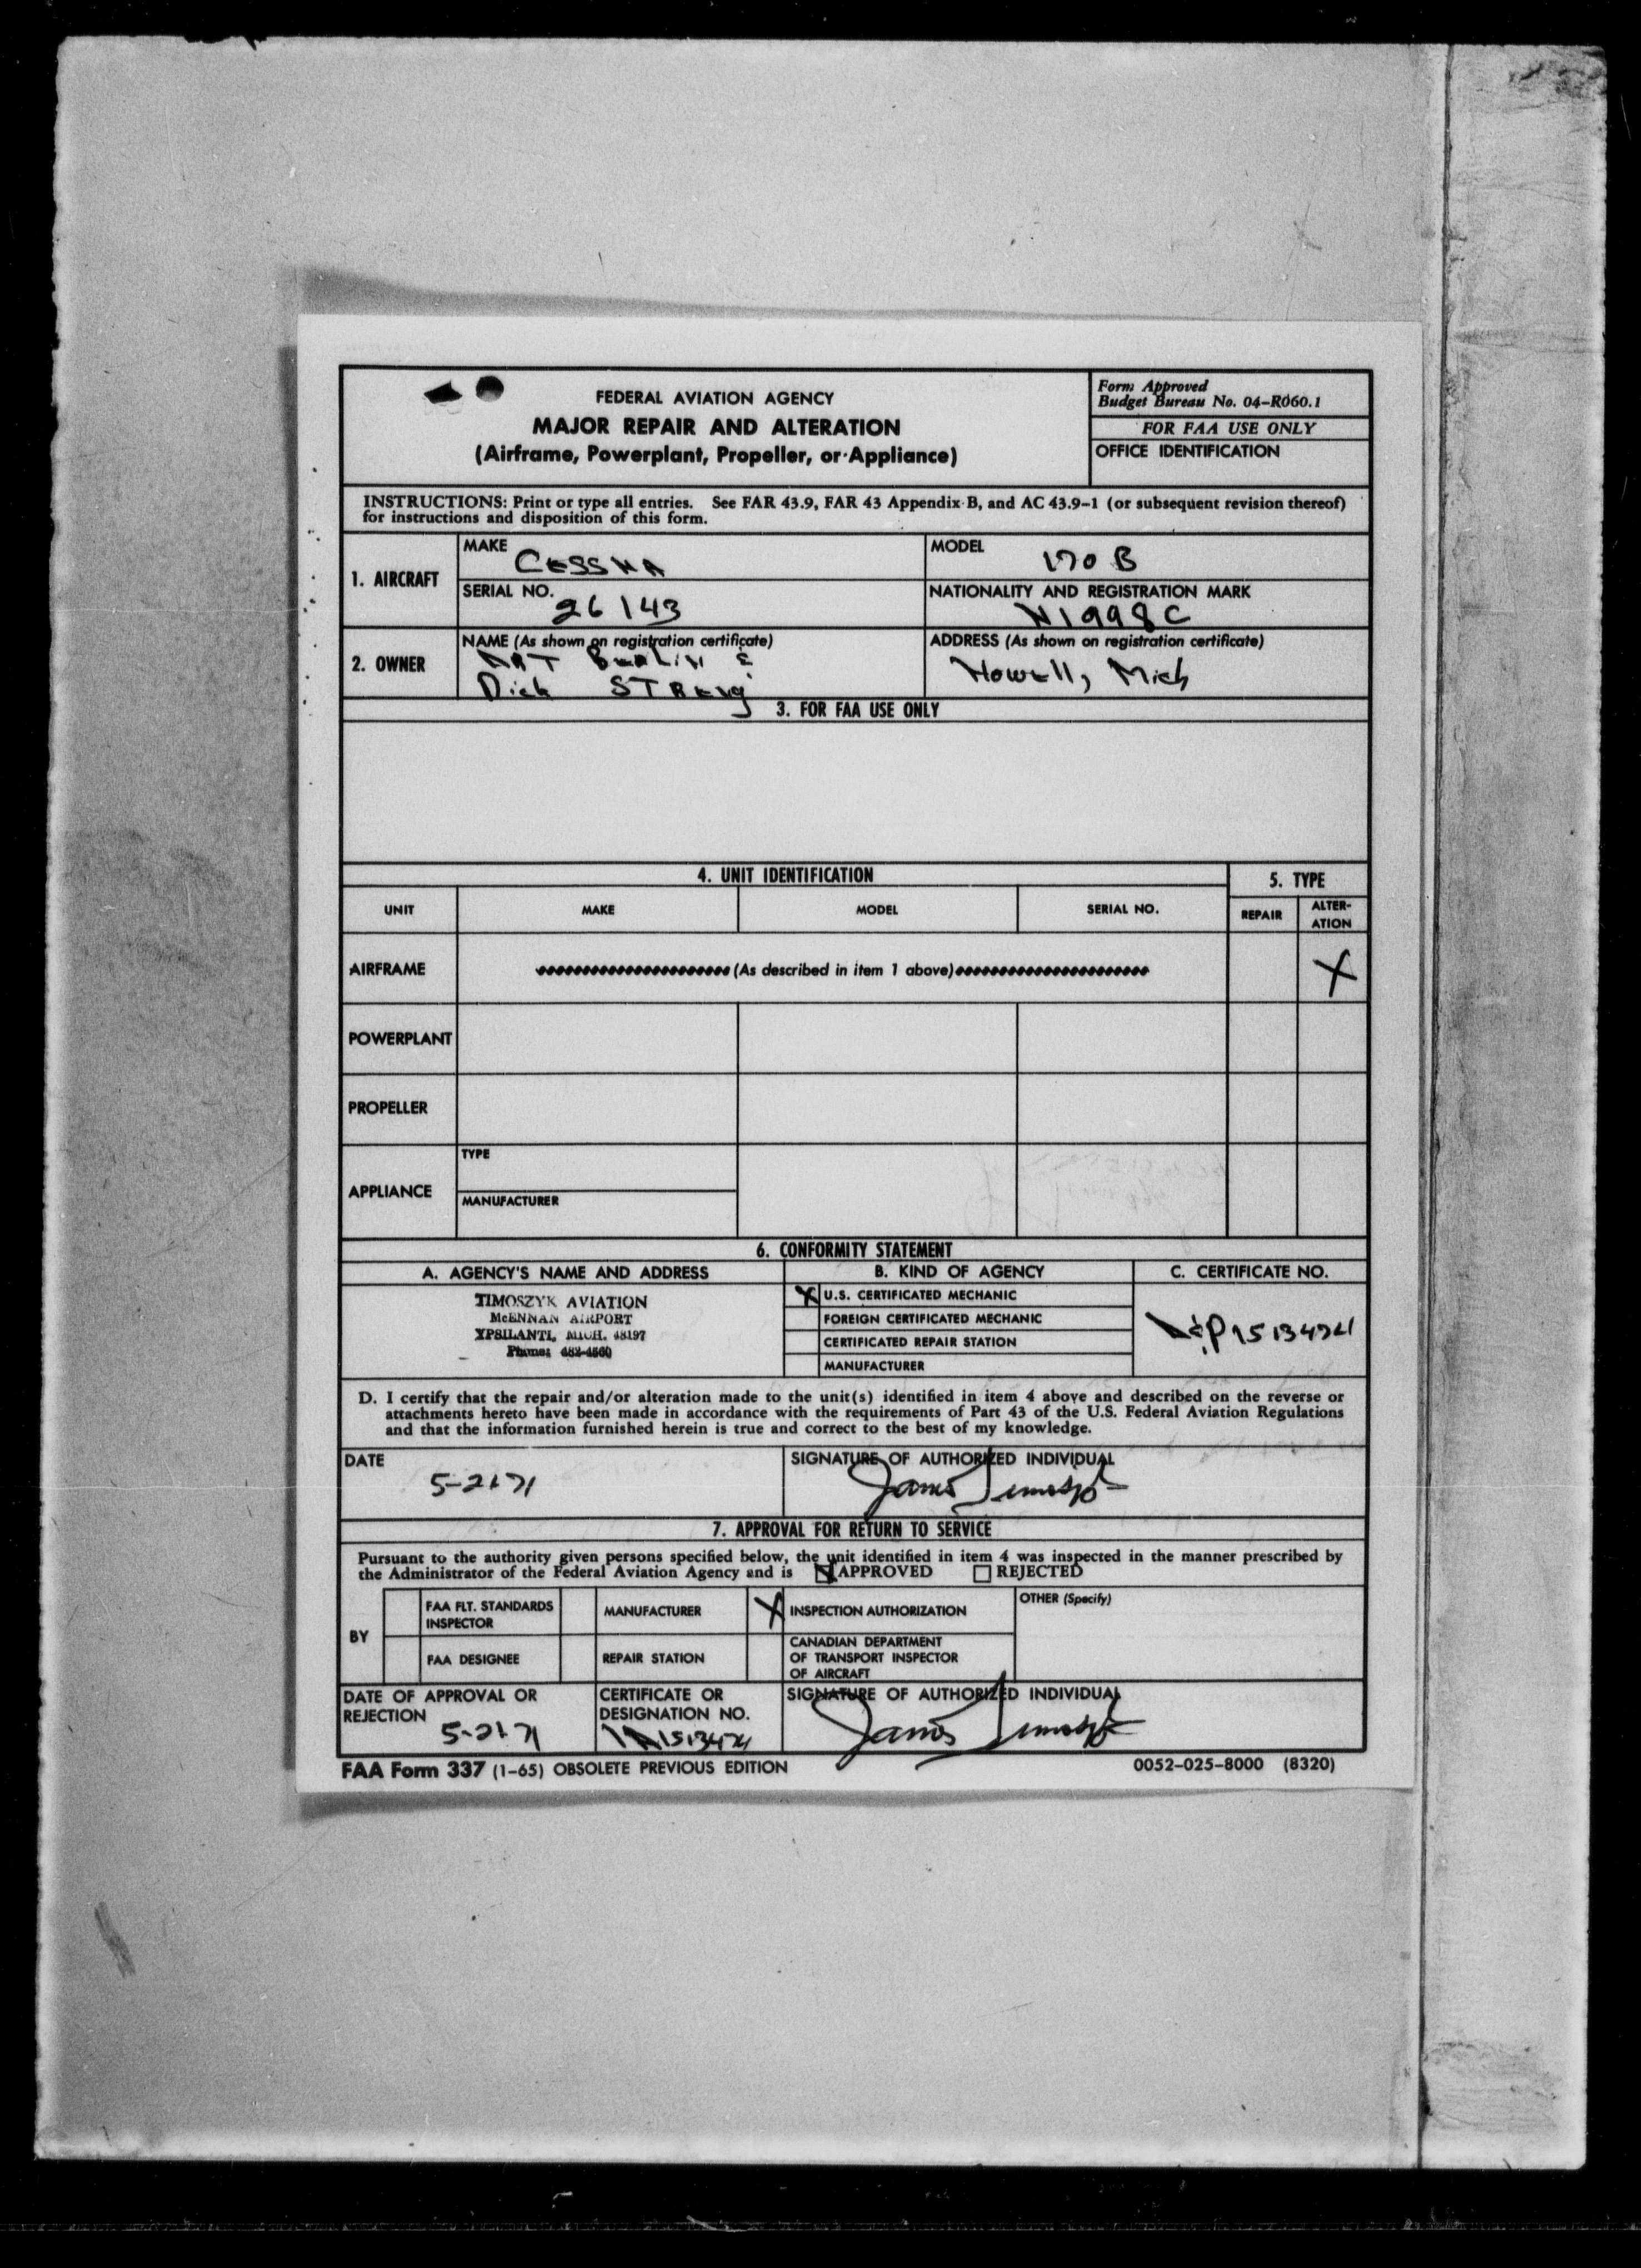 FEDERAL AVIATION AGENCY
MAJOR REPAIR AND ALTERATION
(Airframe, Powerplant, Propeller, or Appliance)
Form Approved
Budget Bureau No. 04-R060.1
FOR FAA USE ONLY
OFFICE IDENTIFICATION
INSTRUCTIONS: Print or type all entries. See FAR 43.9, FAR 43 Appendix B, and AC 43.9-1 (or subsequent revision thereof)
for instructions and disposition of this form.
1. AIRCRAFT
MAKE
CESSNA
MODEL
170 B
SERIAL NO.
26143
NATIONALITY AND REGISTRATION MARK
N1998C
2. OWNER
NAME (As shown on registration certificate)
ART &
Dick
ADDRESS (As shown on registration certificate)
Howell, Mich
3. FOR FAA USE ONLY
4. UNIT IDENTIFICATION
5. TYPE
UNIT
MAKE
MODEL
SERIAL NO.
REPAIR
ALTER-
ATION
AIRFRAME
(As described in item 1 above)
X
POWERPLANT
PROPELLER
APPLIANCE
TYPE
MANUFACTURER
6. CONFORMITY STATEMENT
A. AGENCY'S NAME AND ADDRESS
B. KIND OF AGENCY
C. CERTIFICATE NO.
TIMOSZYK AVIATION
McENNAN AIRPORT
YPSILANTI, MICH. 48197
Phone: 482-4560
X U.S. CERTIFICATED MECHANIC
FOREIGN CERTIFICATED MECHANIC
CERTIFICATED REPAIR STATION
MANUFACTURER
A&P 1513474
D. I certify that the repair and/or alteration made to the unit(s) identified in item 4 above and described on the reverse or
attachments hereto have been made in accordance with the requirements of Part 43 of the U.S. Federal Aviation Regulations
and that the information furnished herein is true and correct to the best of my knowledge.
DATE
5-21-71
SIGNATURE OF AUTHORIZED INDIVIDUAL
7. APPROVAL FOR RETURN TO SERVICE
Pursuant to the authority given persons specified below, the unit identified in item 4 was inspected in the manner prescribed by
the Administrator of the Federal Aviation Agency and is APPROVED REJECTED
BY
FAA FLT. STANDARDS
INSPECTOR
MANUFACTURER
X INSPECTION AUTHORIZATION
OTHER (Specify)
FAA DESIGNEE
REPAIR STATION
CANADIAN DEPARTMENT
OF TRANSPORT INSPECTOR
OF AIRCRAFT
DATE OF APPROVAL OR
REJECTION
5-21-71
CERTIFICATE OR
DESIGNATION NO.
IA 1513474
SIGNATURE OF AUTHORIZED INDIVIDUAL
FAA Form 337 (1-65) OBSOLETE PREVIOUS EDITION
0052-025-8000 (8320)